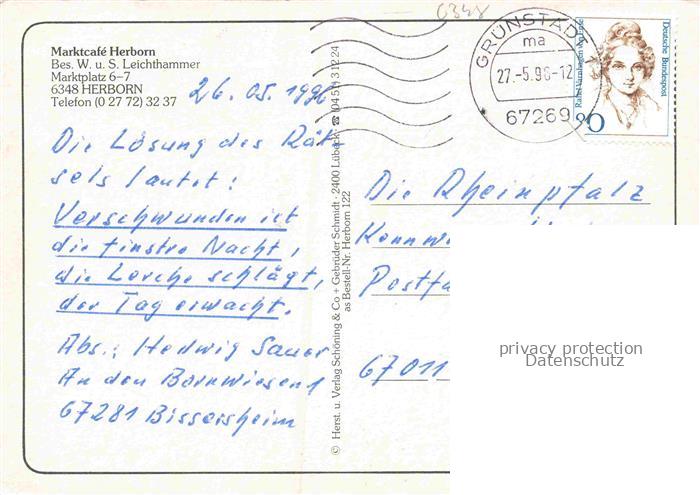 0348
Marktcafé Herborn
Bes. W. u. S. Leichthammer
Marktplatz 6–7
6348 HERBORN
Telefon (0 27 72) 32 37
26.05.1996
Die Lösung des Rät
sels lautet:
Verschwunden ist
die finstre Nacht,
die Lerche schlägt,
der Tag erwacht.
Abs.: Hedwig Sauer
An den Bornwiesen 4
67281 Bissersheim
© Herst. u. Verlag Schöning & Co + Gebrüder Schmidt · 2400 Lübeck ☎ (04 51) 3 12 24
as Bestell-Nr. Herborn 122
GRÜNSTADT 1
ma
27.-5.96-12
67269
Deutsche Bundespost
Rahel Varnhagen von Ense
90
Die Rheinpfalz
Kennw
Postfa
67011
privacy protection
Datenschutz